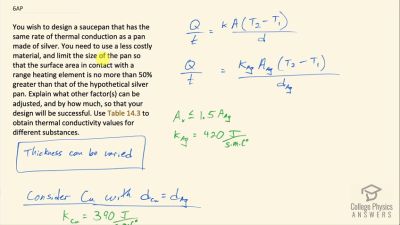 6AP
You wish to design a saucepan that has the
same rate of thermal conduction as a pan
made of silver. You need to use a less costly
material, and limit the size of the pan so
that the surface area in contact with a
range heating element is no more than 50%
greater than that of the hypothetical silver
pan. Explain what other factor(s) can be
adjusted, and by how much, so that your
design will be successful. Use Table 14.3 to
obtain thermal conductivity values for
different substances.
Thickness can be varied
Consider Cu with d_Cu = d_Ag
k_Cu = 390 J/s·m·C°
Q/t = kA(T₂ - T₁)/d
Q/t = k_Ag A_Ag (T₂ - T₁)/d_Ag
Aₓ ≤ 1.5 A_Ag
k_Ag = 420 J/s·m·C°
College Physics
ANSWERS